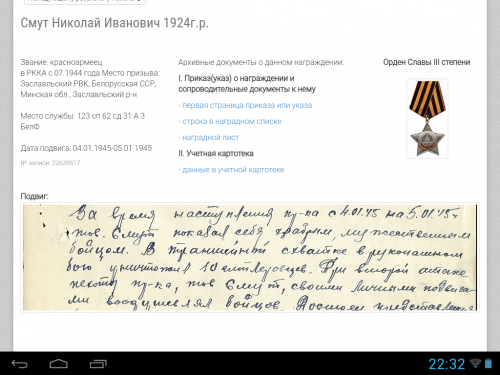 Смут Николай Иванович 1924г.р.
Звание: красноармеец
в РККА с 07.1944 года Место призыва:
Заславльский РВК, Белорусская ССР,
Минская обл., Заславльский р-н
Место службы: 123 сп 62 сд 31 А 3
БелФ
Дата подвига: 04.01.1945-05.01.1945
№ записи: 22639517
Архивные документы о данном награждении:
I. Приказ(указ) о награждении и
сопроводительные документы к нему
- первая страница приказа или указа
- строка в наградном списке
- наградной лист
II. Учетная картотека
- данные в учетной картотеке
Орден Славы III степени
Подвиг:
За время наступления пр-ка с 4.01.45 на 5.01.45г
тов. Смут показал себя храбрым, мужественным
бойцом. В траншейной схватке в рукопашном
бою уничтожил 10 гитлеровцев. При второй атаке
пехоты пр-ка, тов Смут, своими личными подвига-
ми воодушевлял бойцов. Достоин
22:32